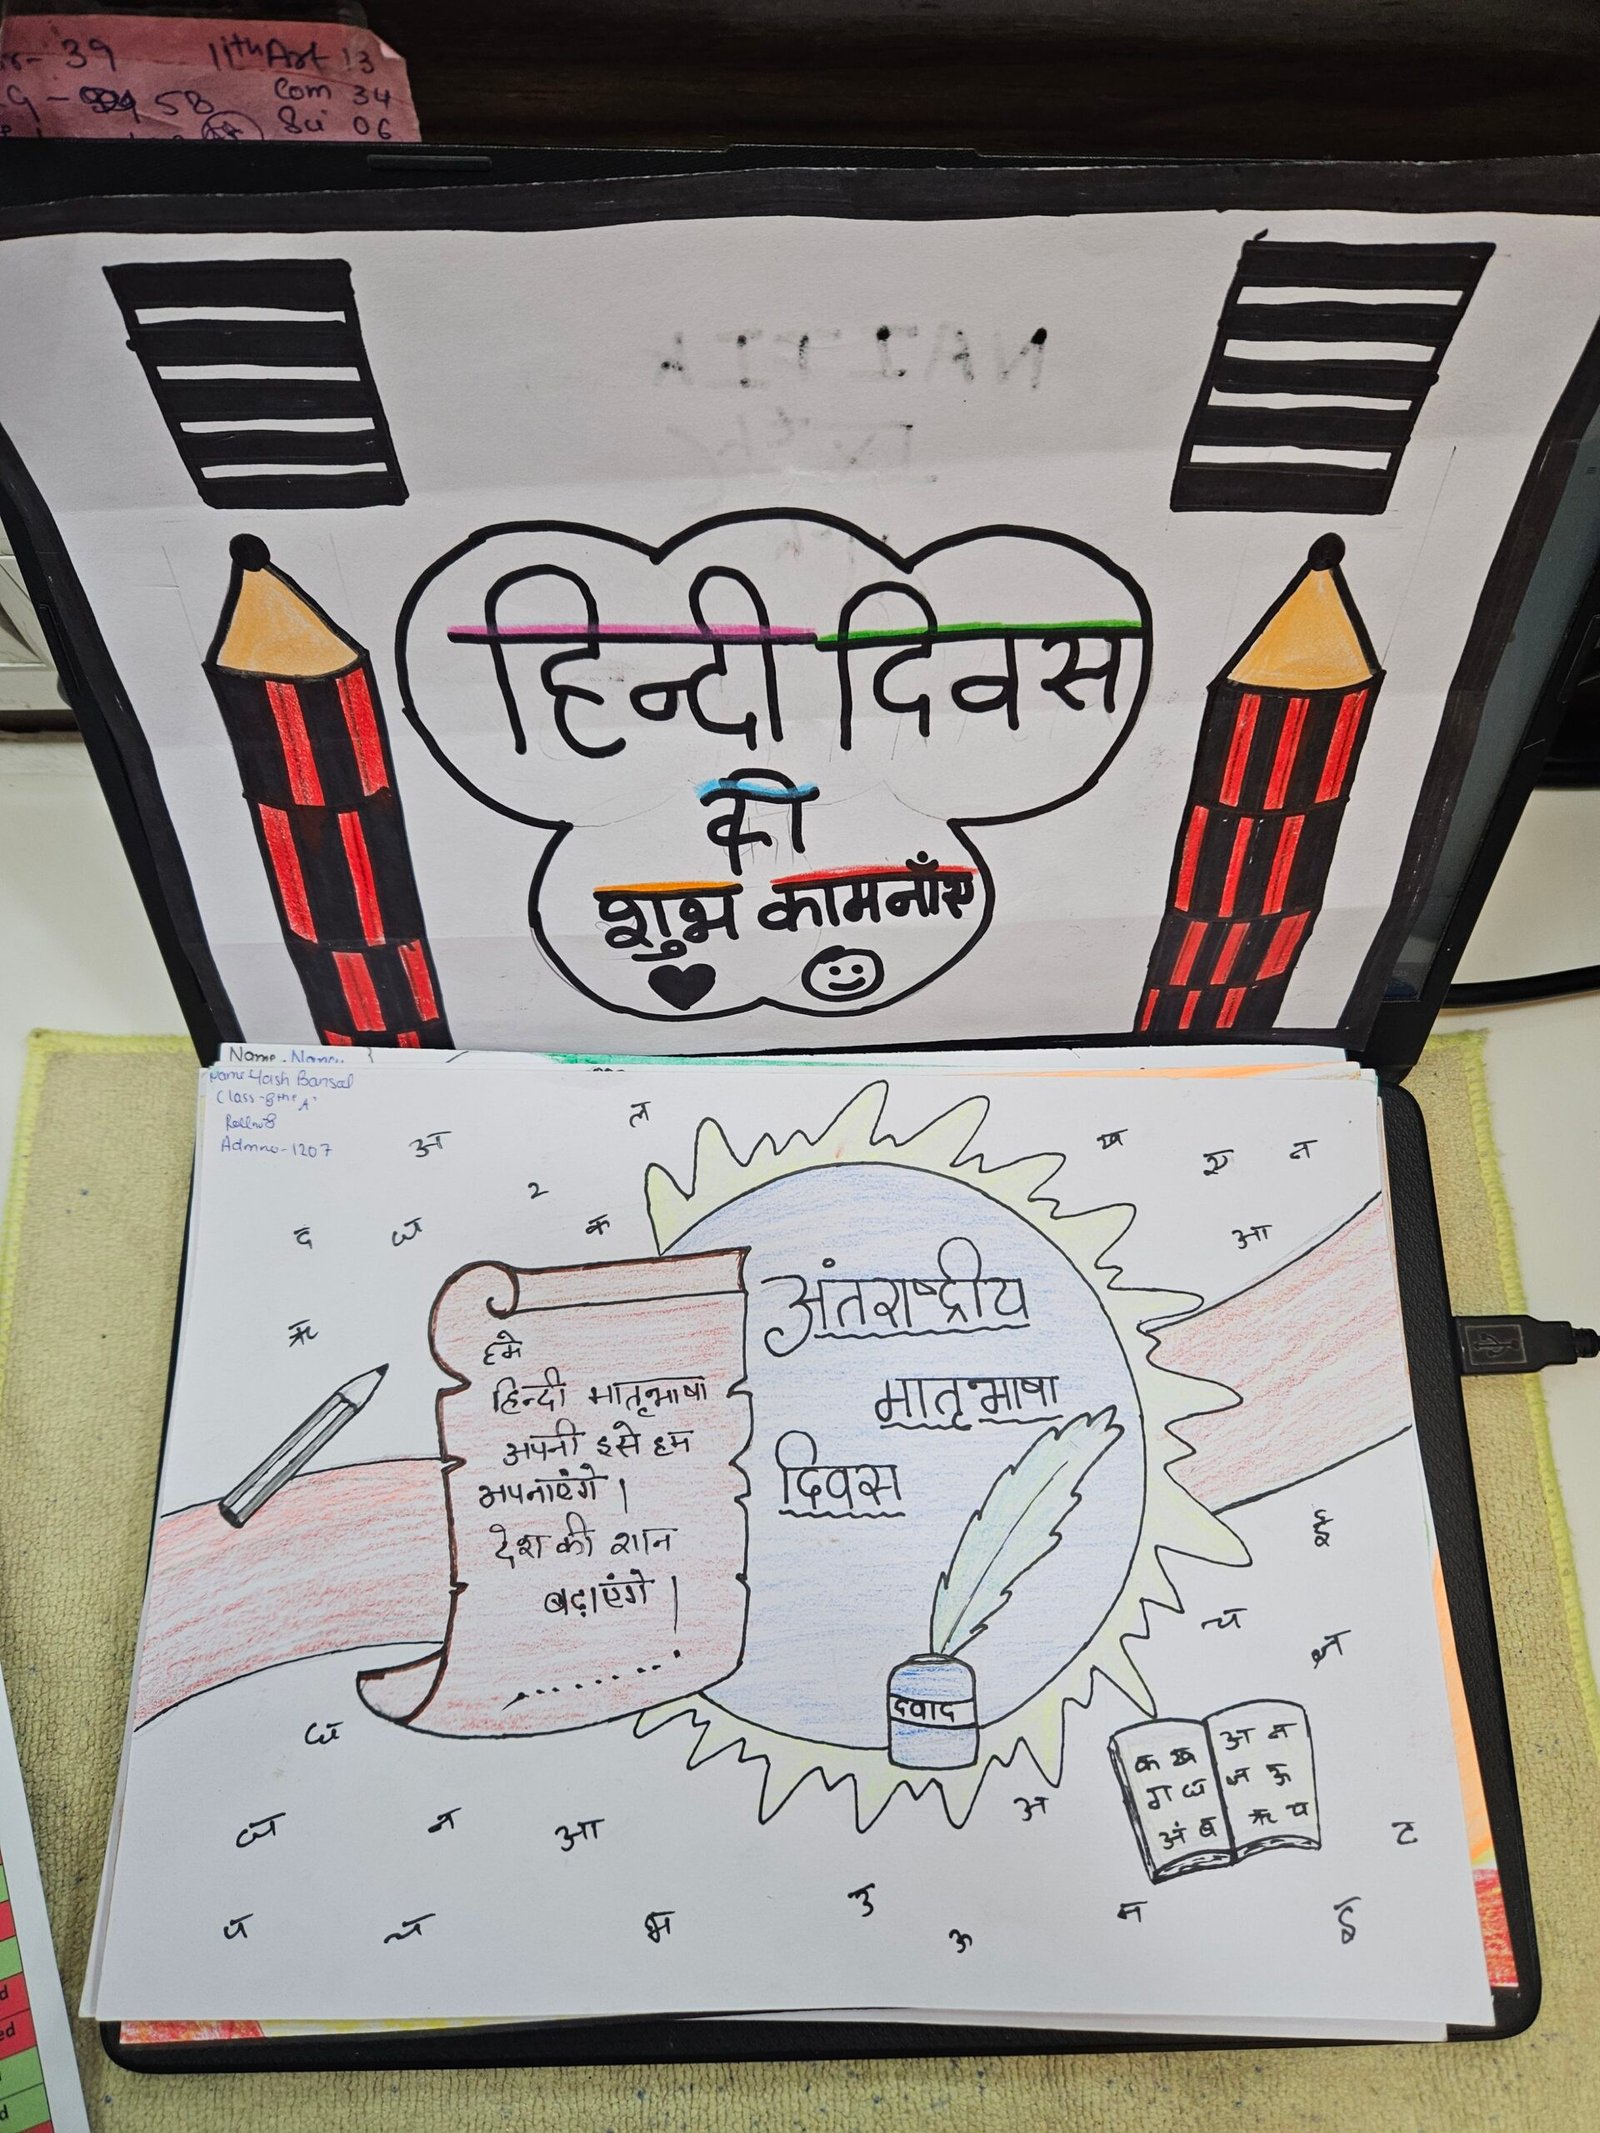 39 11th Art 13
58 Com 34
Sci 06
हिन्दी दिवस
की
शुभ कामनाँए
Name - Name
Name Yash Bansal
Class - 8th 'A'
Roll no 8
Admno - 1207
ल
अ
ख
न
२
द
क
आ
ऋ
अंतराष्ट्रीय
मातृभाषा
दिवस
हमे
हिन्दी मातृभाषा
अपनी इसे हम
अपनाएंगे ।
देश की शान
बढ़ाएंगे ।
.......
दवाद
ई
क ख अ न
ग घ ज ऊ
अं ब ऋ प
अ
न
आ
ट
भ
उ
म